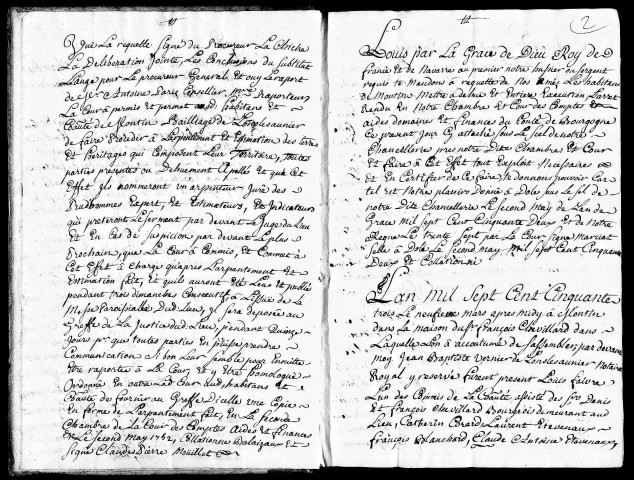 Vu la requette Signé du Procureur La Chiche
La Deliberation Jointe, Les Conclusions du Substitut
Lange pour Le procureur General et ouy Le raport
de Sr Antoine Paris Conseiller Me raporteur
La Cour a permis et permet aud. habitans et
Cauté de Montin Baillage de Lonslesaunier
de faire Proceder a Larpentement et Estimation des terres
et heritages qui Composent Leur Territoire, toutes
parties presentes ou Dehuement Apellés et que a Cet
Effet ils nommeront un arpenteur Juré des
Prudhommes Expert, et Estimateurs, et Indicateurs
qui presteront Le Serment par devant Le Juge du Lieu
et En Cas de Suspicion par devant Le plus
Prochain, que La Cour a Commis, et Commet a
Cet Effet a Charge qu'apres Larpentement et
Estimation fait, et quils auront été Leus et publiés
pendant trois dimanches Consecutifs a Lissue de La
Messe Paroissialle Dud. Lieu, Il sera deposée au
Greffe de La Justice dud. Lieu, pendant Quinze
Jours pr que toutes parties En puisse prendre
Communication si bon Leur semble pour Ensuitte
être raportés a La Cour et y être homologué
Ordonne En outre Lad. Cour aud. habitans et
Cauté de fournir au Greffe Dicelle une Copie
En forme de Larpentement fait, En La Seconde
Chambre de La Cour des Comptes Aides et finances
Le Second May 1752, Collationné et
Signé Claude Pierre Mouillet
2
Louis par La Grace de Dieu Roy de
france et de Navarre au premier notre huissier ou Sergent
requis te Mandons a requette de Nos amés Les habitans
de Montin Mettre a deüe et Entiere Execution Larret
Rendu En Notre Chambre et Cour des Comptes
aides domaines et finances du Comté de Bourgogne
Ce present jour Cy attaché sous Le Scel de notre
Chancellerie pres notre Dite Chambre et Cour
et faire a Cet Effet tout Exploit Necessaires
et En Certifier de Ce faire te donnons pouvoir Car
tel est Notre plaisir Donné a Dole sous Le Scel de
notre Dite Chancellerie Le Second May de Lan de
Grace Mil Sept Cent Cinquante Deux et de Notre
Regne Le trente Sept par La Cour Signé
Scellé a Dole Le Second may Mil Sept Cent Cinquante
Deux et Collationné
Lan Mil Sept Cent Cinquante
trois Le neufieme mars apres midy a Montin
dans La maison du Sr François Chevillard dans
Laquelle Lon a accoutumé de Sassembler par devant
moy Jean Baptiste Vernier de Lonslesaunier Notaire
Royal y reservé furent present Louis faivre
Lun des Commis de La Cauté assisté des Srs Denis
et François Chevillard Bourgeois demeurant aud.
Lieu, Catherin Girard Laurent Etevenaux
François Blanchard, Claude Antoine Etevenaux